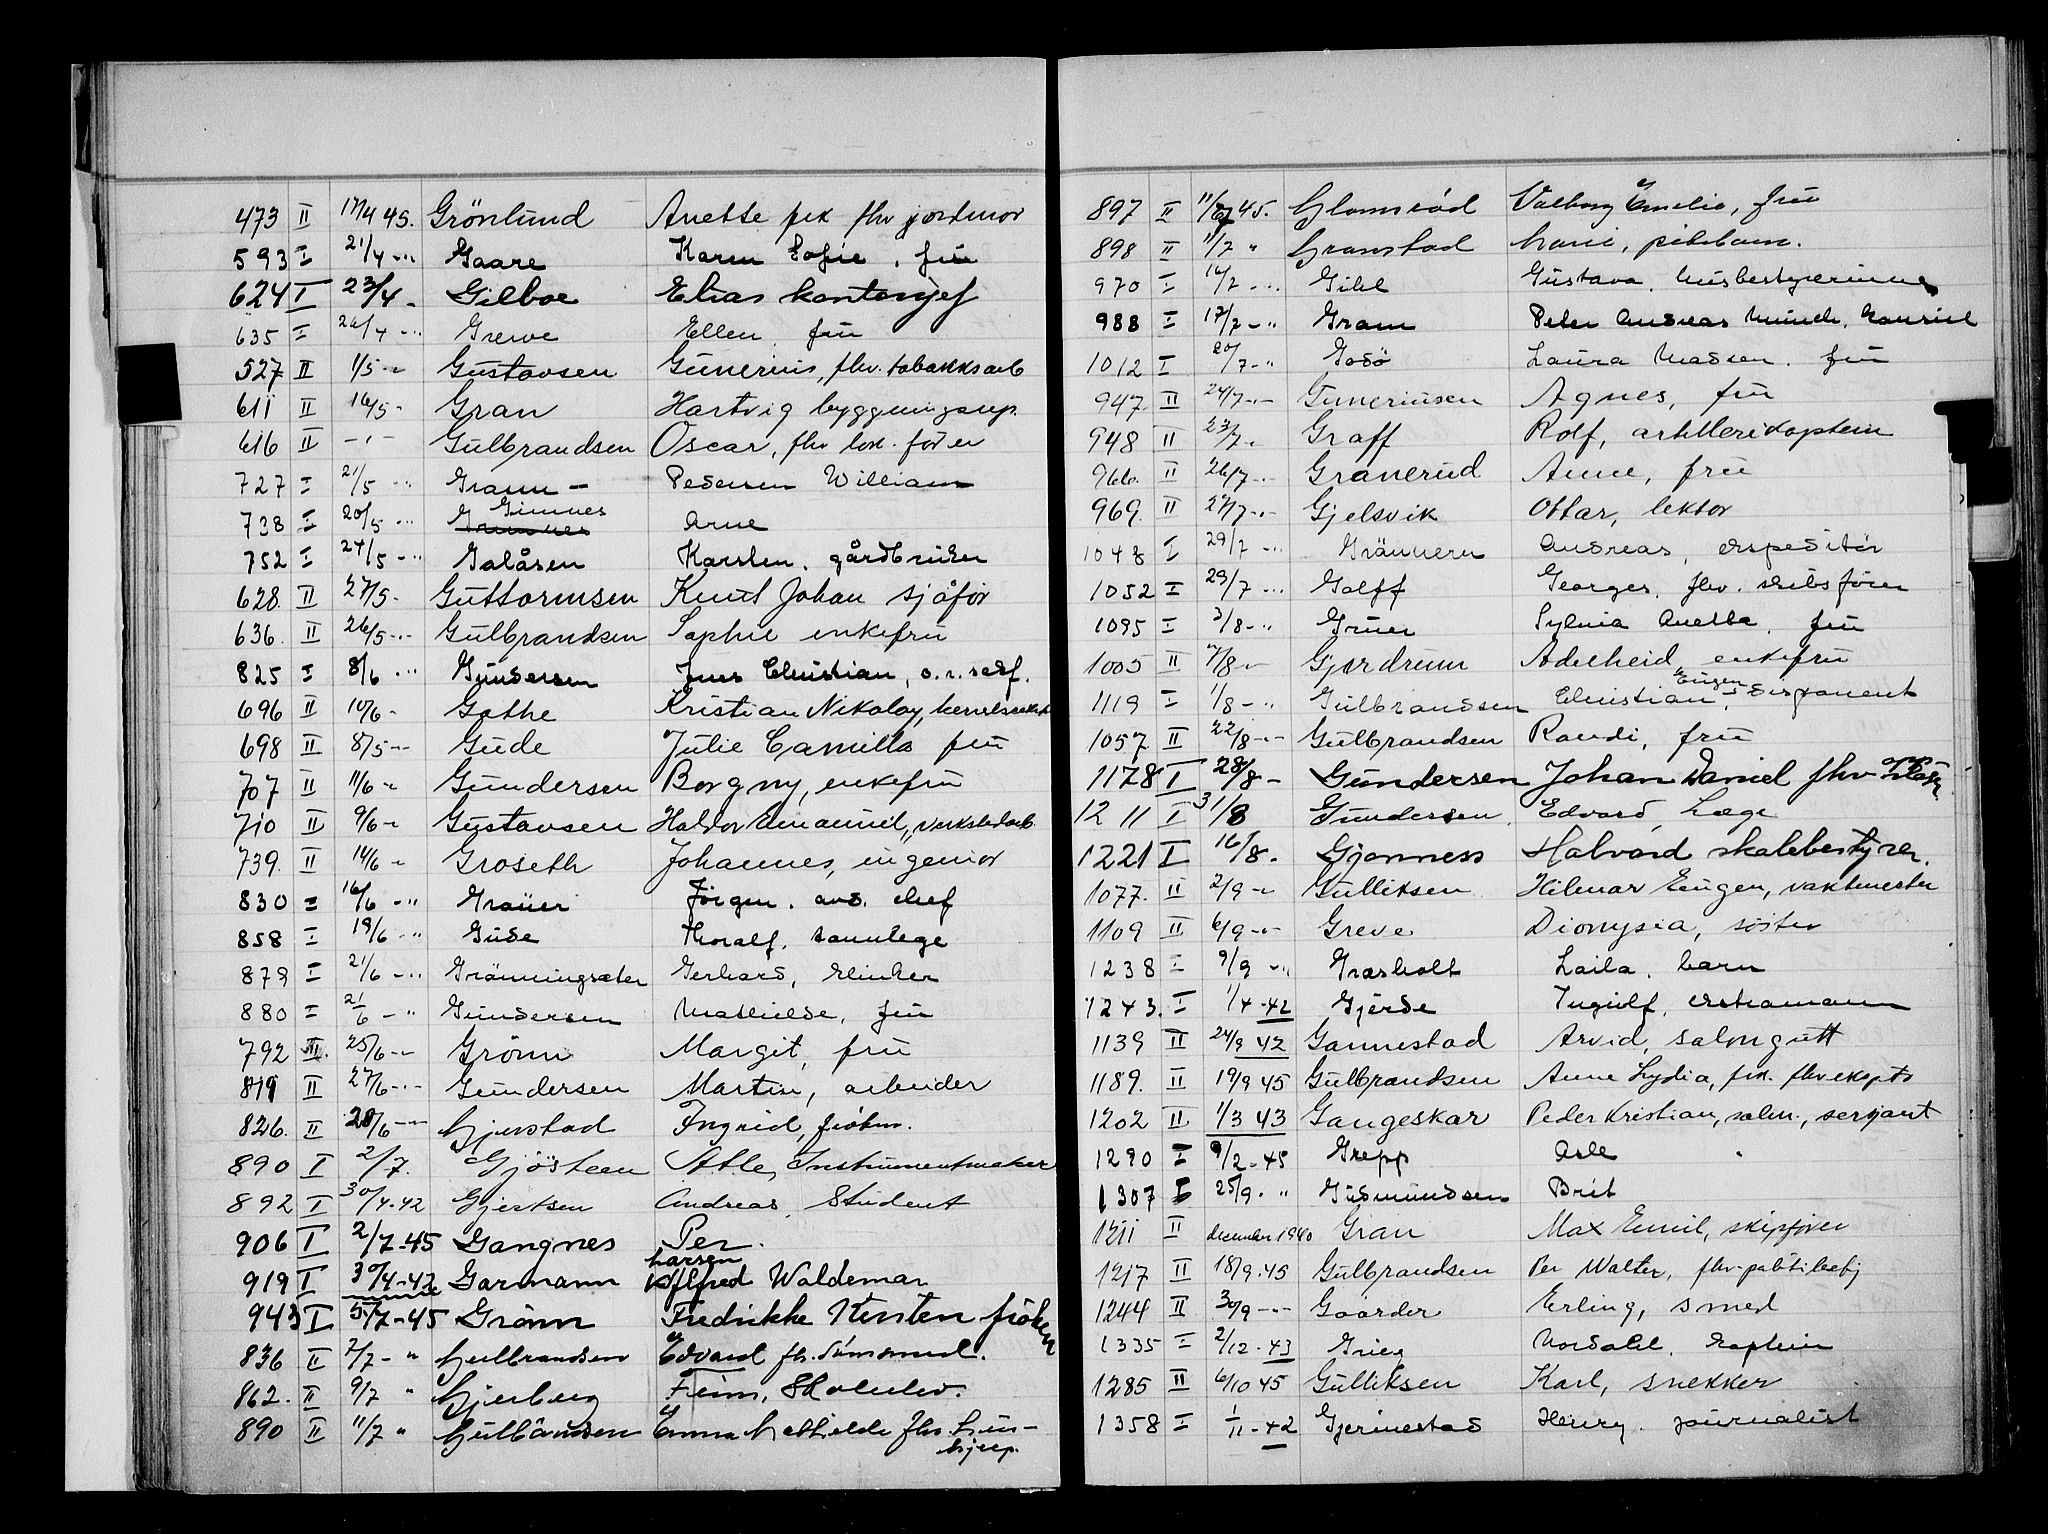 473 II 17/4 45. Grönlund Anette frk fhv jordmor
593 I 21/4 -" Gaare Karen Sofie, fru
624 I 23/4 - Gilboe Elias kontorsjef
635 I 26/4 -" Grewe Ellen, fru
527 II 1/5 -" Gustavsen Gunerius, fhv. tobakksarb
611 II 16/5 - Gran Hartvig bygningsinsp.
616 II -"- Gulbrandsen Oscar, fhv lok. fører
727 I 21/5 -" Grann - Pedersen William
738 I 20/5 -" Gimnes Arne
752 I 24/5 -" Galåsen Karsten, gårdbruker
628. II 27/5 - Guttormsen Knut Johan sjåfør
636. II 26/5 -"- Gulbrandsen Sophie enkefru
825 I 8/6 -" Gundersen Jens Christian, o.r.sakf.
696 II 10/6 - Gothe Kristian Nikolay,
698 II 8/5 -"- Gude Julie Camilla fru
707 II 11/6 -" Gundersen Borgny, enkefru
710 II 9/6 -" Gustavsen Halvor Emanuel, verkstedarb.
739. II 14/6 -" Groseth Johannes, ingeniør
830 I 16/6 -" Graüer Jörgen, avd. chef
858 I 19/6 -" Gude Thoralf, tannlege
879 I 21/6 -" Grönningsæter Gerhard, klinker
880 I 21/6 -" Gundersen Mathilde, fru
792 II. 25/6 -"- Grönn Margit, fru
811 II 27/6 -"- Gundersen Martin, arbeider
826. II 28/6 -"- Gjerstad Ingrid, frøken.
890 I 2/7. Gjösteen Atle, Instrumentmaker
892 I 30/4-42 Gjertsen Andreas, Student
906 I 2/7-45 Gangnes Per.
Larsen
919 I 30/4-42 Garmann Alfred Waldemar
943 I 5/7-45 Grönn Fredrikke Kirsten fröken
836 II 7/7- " Gulbrandsen Edvard fh. Tömmerm.
862. II 9/7 " Gjerberg Finn, Skoleelev.
890 II 11/7 " Gulbrandsen Emma Mathilde fhv. hus-
hjelp.
897 II 11/7 45. Glomsröd Valborg Emelie, fru
898 II 11/7 " Granstad Marie, pikebarn.
970 I 16/7 -" Gihl Gustava, husbestyrerinne
988 I 17/7 -" Gram Peter Andreas Munch, Konsul
1012 I 20/7 -" Godö Laura Madsen, fru
947. II 24/7 -"- Guneriusen Agnes, fru
948 II 23/7 -" Graff Rolf, artillerikaptein
966. II 26/7 -" Granerud Anne, fru
969. II 27/7 -"- Gjelsvik Ottar, lektor
1048 I 29/7 -" Grännern Andreas, ekspeditör
1052 I 29/7 -" Golff Georges, fhv. skibsförer
1095 I 3/8 -" Gruer Sylvia Anetta, fru
1005 II 7/8 -"- Gjerdrum Adelheid, enkefru
Eugen
1119 I 1/8 -" Gulbrandsen Christian, disponent
1057 II 22/8 -"- Gulbrandsen Randi, fru
1178 I 28/8 - Gundersen Johan Daniel fhv
1211 I 31/8 Gundersen Edvard, Læge
1221 I 16/8. Gjønness Halvard skolebestyrer.
1077. II 2/9 -" Gulliksen Hilmar Eugen, vaktmester
1109 II 6/9 -"- Greve Dionysia, söster
1238 I 9/9 -" Græsholt Laila, barn
1243. I 1/4-42 Gjerde Ingulf, ekstramann
1139 II 24/9 42 Gannestad Arvid, salongutt
1189. II 19/9 45 Gulbrandsen Anne Lydia, frk. fhv ekspts
1202 II 1/3 43 Gangeskar Peder Kristian, salm., serjant
1290 I 9/2-45 Grepp Asle
1307 I 25/9. " Gudmundsen Brit
1211 II december 1940 Gran Max Emil, skipsfører
1217 II 18/9.45 Gulbrandsen Per Walter, fhv. politibetj
1244 II 30/9 -"- Gaarder Erling, smed
1335 I 2/12-43 Grieg Nordahl, Kaptein
1285 II 6/10 45 Gulliksen Karl, snekker
1358 I 1/11-42 Gjerinestad Henry, journalist